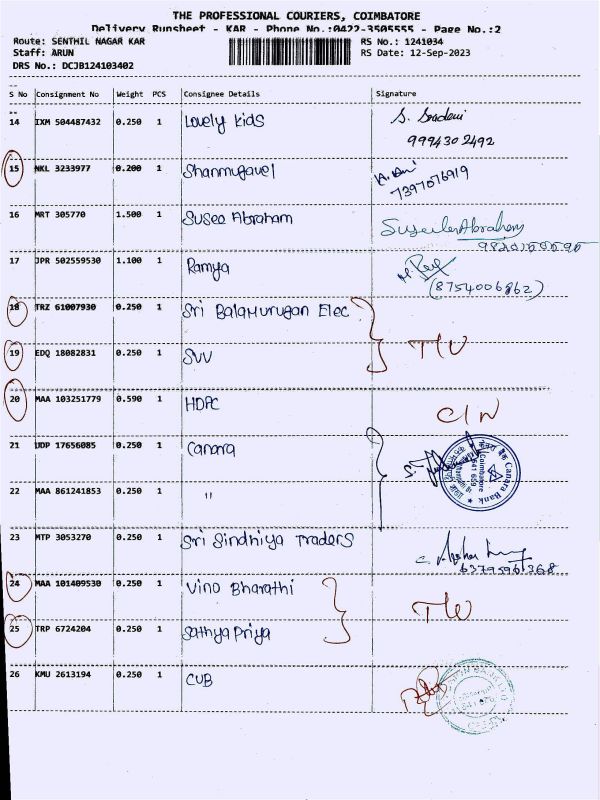 THE PROFESSIONAL COURIERS, COIMBATORE
Delivery Runsheet - KAR - Phone No.:0422-3505555 - Page No.:2
Route: SENTHIL NAGAR KAR RS No.: 1241034
Staff: ARUN RS Date: 12-Sep-2023
DRS No.: DCJB124103402
S No Consignment No Weight PCS Consignee Details Signature
14 IXM 504487432 0.250 1 Lovely Kids
9994302492
15 NKL 3233977 0.200 1 Shanmugavel
7397076919
16 MRT 305770 1.500 1 Susee Abraham
17 JPR 502559530 1.100 1 Ramya
(8754006862)
18 TRZ 61007930 0.250 1 Sri Balamurugan Elec
19 EDQ 18082831 0.250 1 SVV
20 MAA 103251779 0.590 1 HDFC
21 UDP 17656085 0.250 1 Canara
Canara Bank
Coimbatore
22 MAA 861241853 0.250 1 "
23 MTP 3053270 0.250 1 Sri Sindhiya Traders
24 MAA 101409530 0.250 1 Vino Bharathi
25 TRP 6724204 0.250 1 Sathya Priya
26 KMU 2613194 0.250 1 CUB